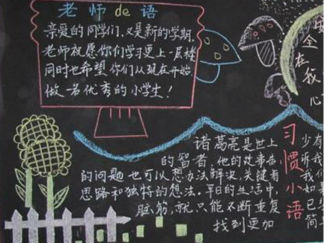 老师de语
亲爱的同学们,又是新的学期,
老师祝愿你们学习更上一层楼
同时也希望你们从现在开始
做一名优秀的小学生!
诸葛亮是世上
的智者,他的故事在
的问题也可以想办法解决,关键看
思路和独特的想法。平日的生活中,
脑筋,就只能不断重复
找到更加
习惯小语
全
在
我
心